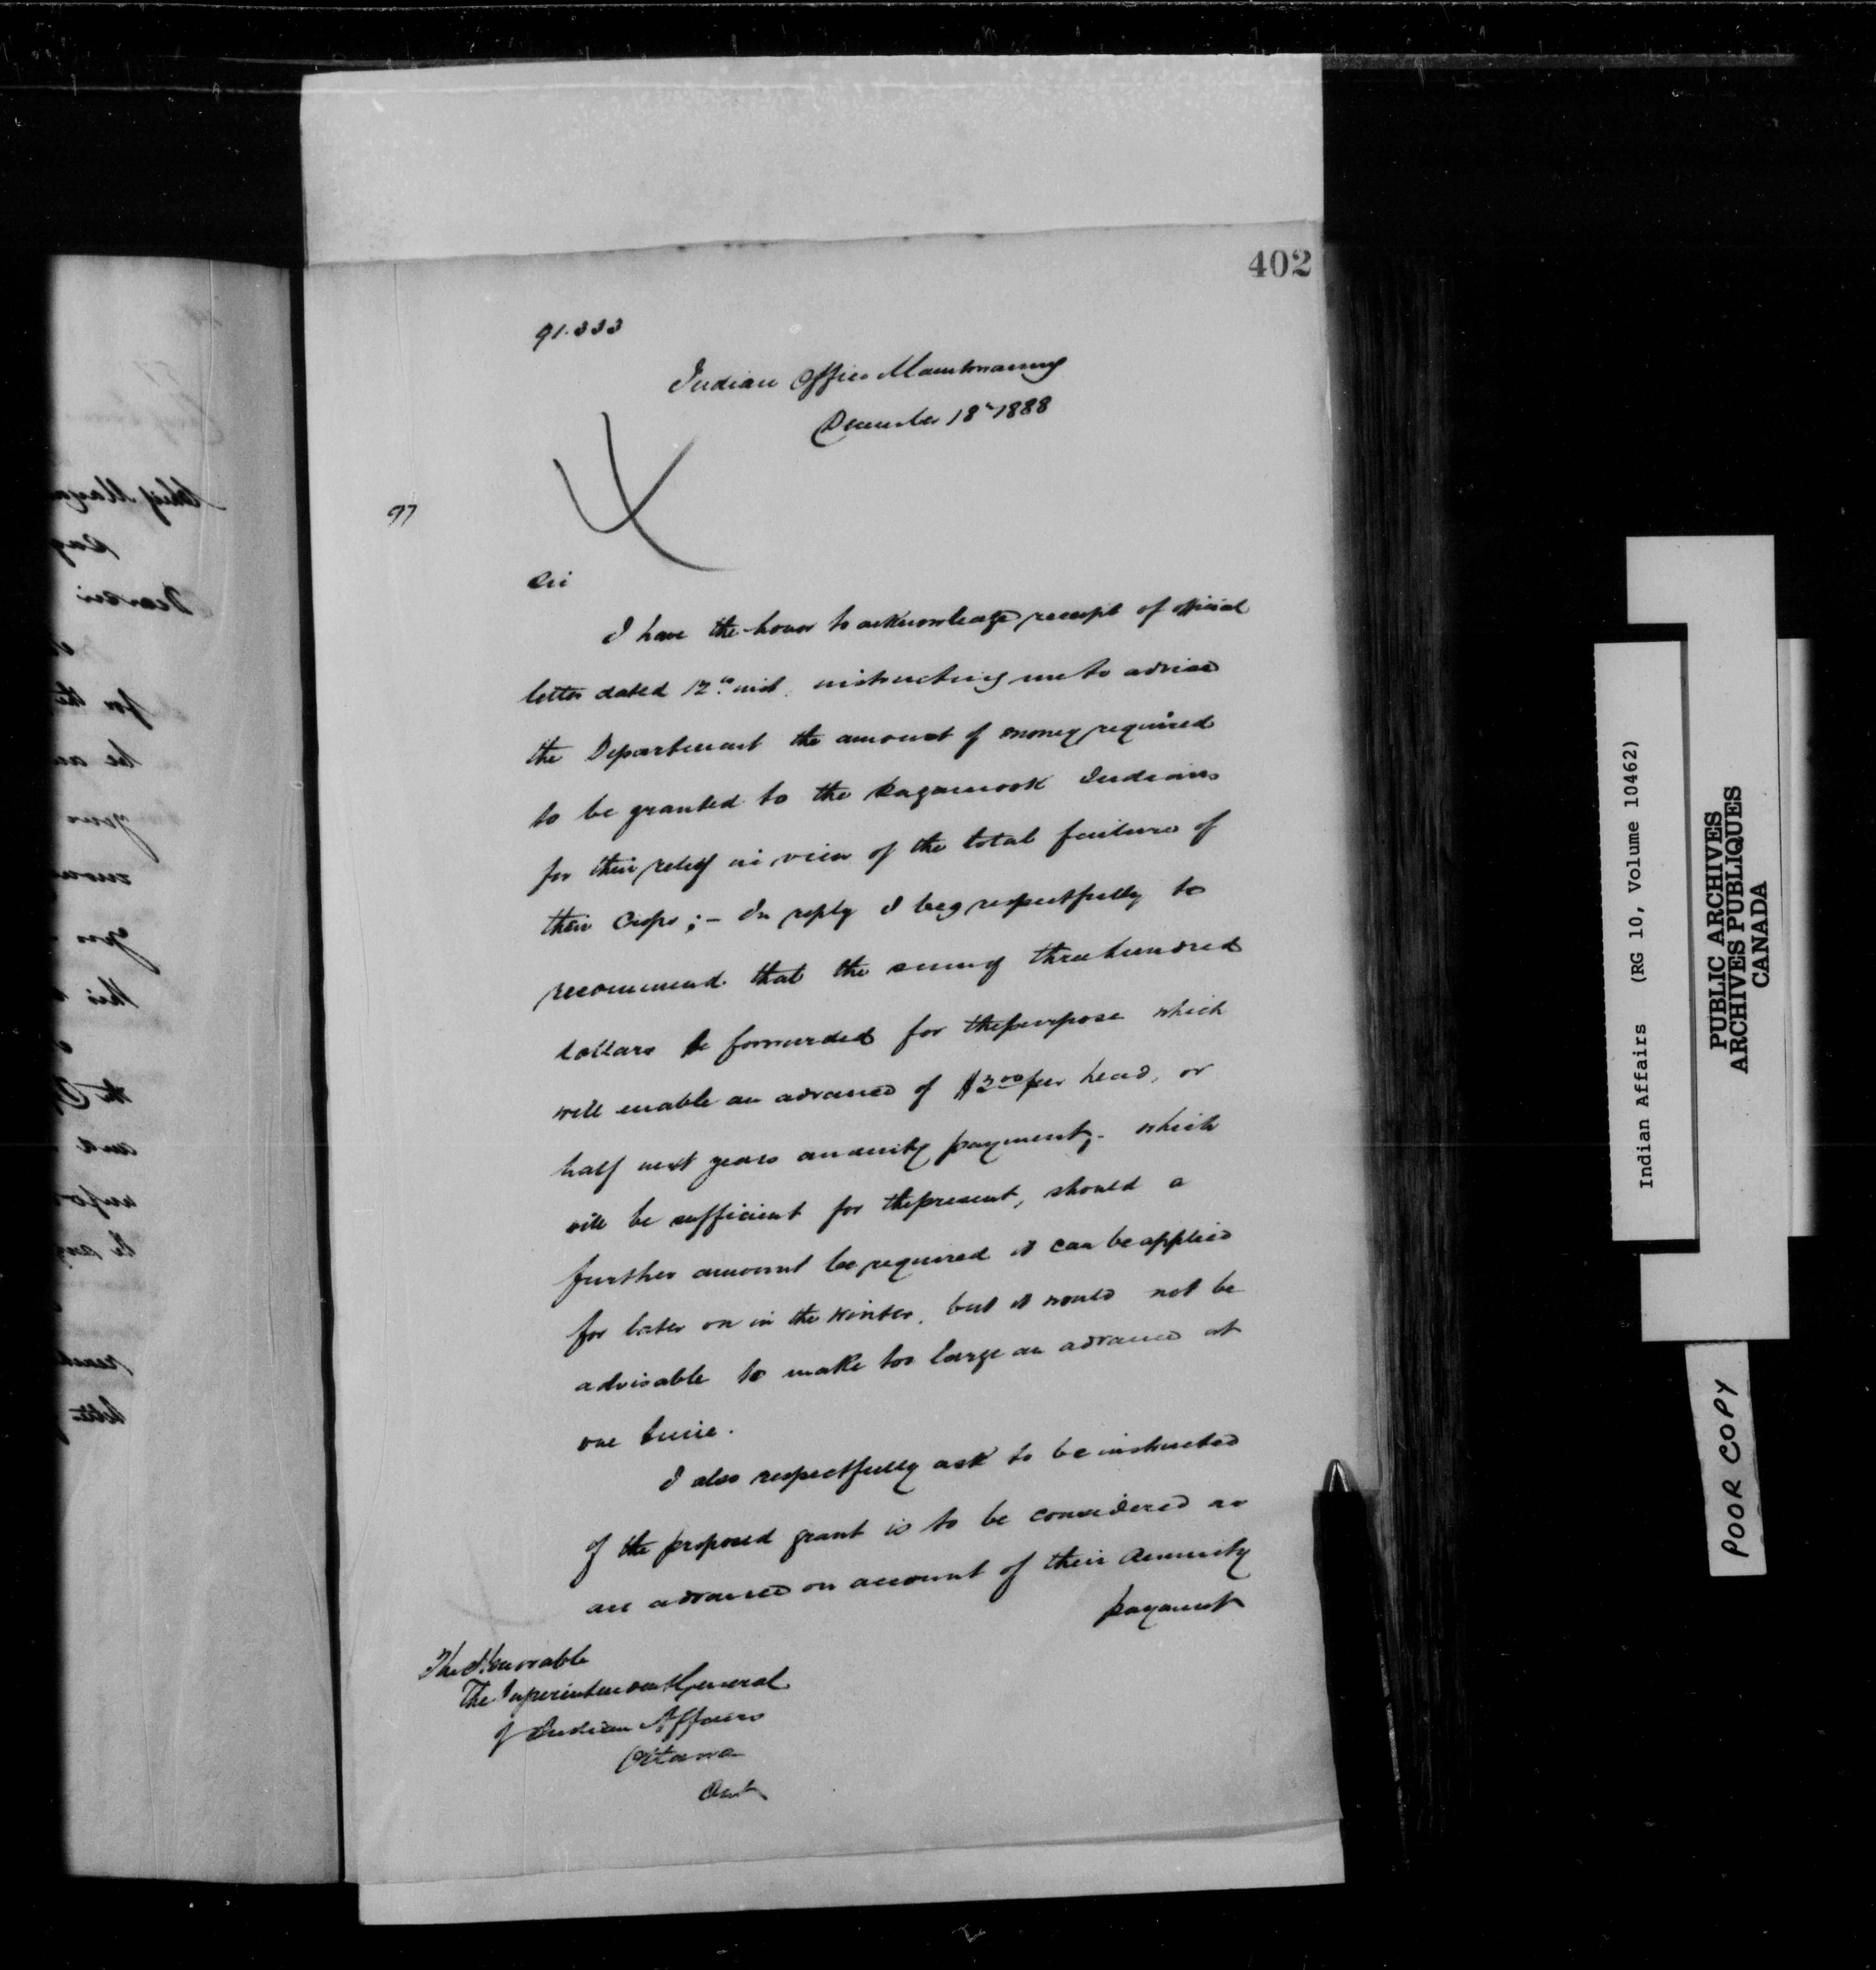 402
91.333
Indian Office Manitowaning
December 18th 1888
97
Sir
I have the honor to acknowledge receipt of official
letter dated 12th inst. instructing me to advise
the Department the amount of money required
to be granted to the Kagawook Indians
for their relief in view of the total failure of
their Crops ; - In reply I beg respectfully to
recommend that the sum of three hundred
dollars be forwarded for the purpose which
will enable an advance of $2.00 per head, or
half next years annuity payment, - which
will be sufficient for the present, should a
further amount be required it can be applied
for later on in the winter, but it would not be
advisable to make too large an advance at
one time.
I also respectfully ask to be instructed
if the proposed grant is to be considered as
an advance on account of their Annuity
payment
The Honorable
The Superintendent General
of Indian Affairs
Ottawa
Ont
Indian Affairs (RG 10, Volume 10462)
PUBLIC ARCHIVES
ARCHIVES PUBLIQUES
CANADA
POOR COPY